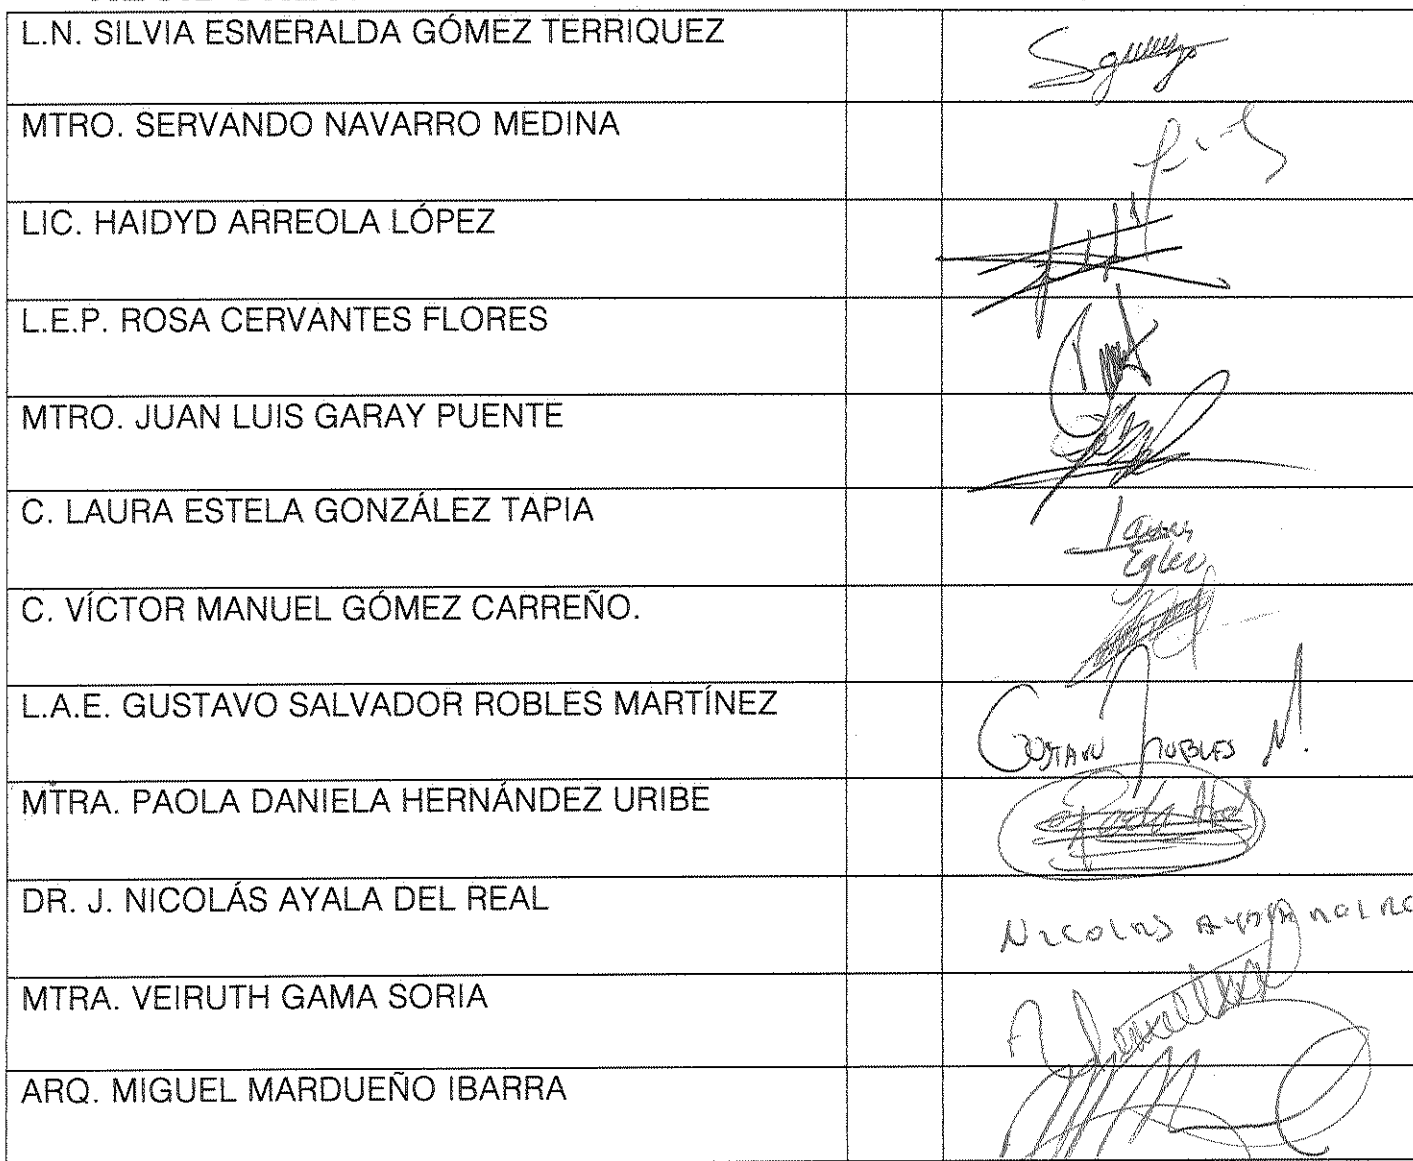 L.N. SILVIA ESMERALDA GÓMEZ TERRIQUEZ
MTRO. SERVANDO NAVARRO MEDINA
LIC. HAIDYD ARREOLA LÓPEZ
L.E.P. ROSA CERVANTES FLORES
MTRO. JUAN LUIS GARAY PUENTE
C. LAURA ESTELA GONZÁLEZ TAPIA
Laura
C. VÍCTOR MANUEL GÓMEZ CARREÑO.
L.A.E. GUSTAVO SALVADOR ROBLES MARTÍNEZ
GUSTAVO ROBLES M.
MTRA. PAOLA DANIELA HERNÁNDEZ URIBE
DR. J. NICOLÁS AYALA DEL REAL
NICOLAS AYALA
MTRA. VEIRUTH GAMA SORIA
ARQ. MIGUEL MARDUEÑO IBARRA